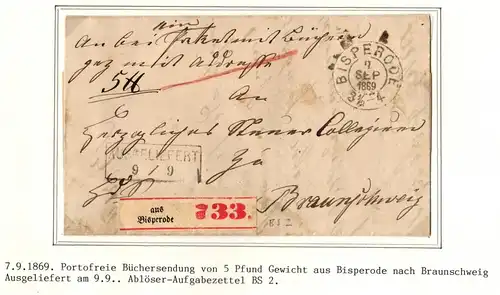 ein
An bei Paket mit Büchern
gez mit Addresse
5 ℔
An
Herzogliches Steuer Collegium
Zu
Braunschweig
BISPERODE
SEP
1869
AUSGELIEFERT
9 / 9
aus
Bisperode
733.
7.9.1869. Portofreie Büchersendung von 5 Pfund Gewicht aus Bisperode nach Braunschweig
Ausgeliefert am 9.9.. Ablöser-Aufgabezettel BS 2.